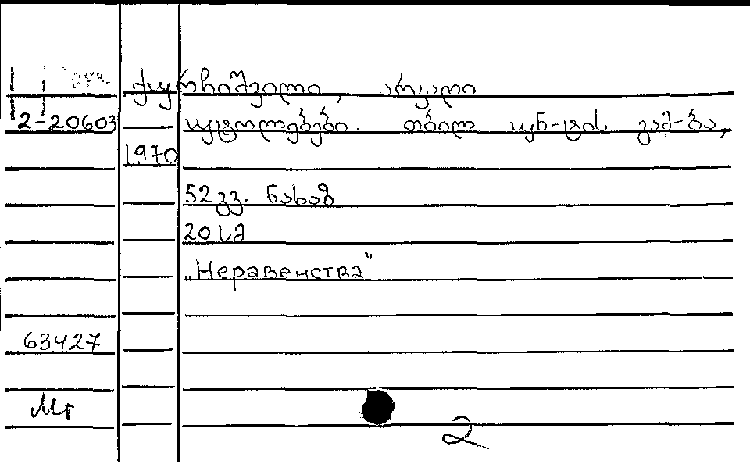 ქურჩიშვილი, არკადი
2-20603 უტოლობები. თბილ. უნ-ტის გამ-ბა,
1970
52 გვ. ნახაზ
20 სმ
„Неравенства"
63427
Мг
2